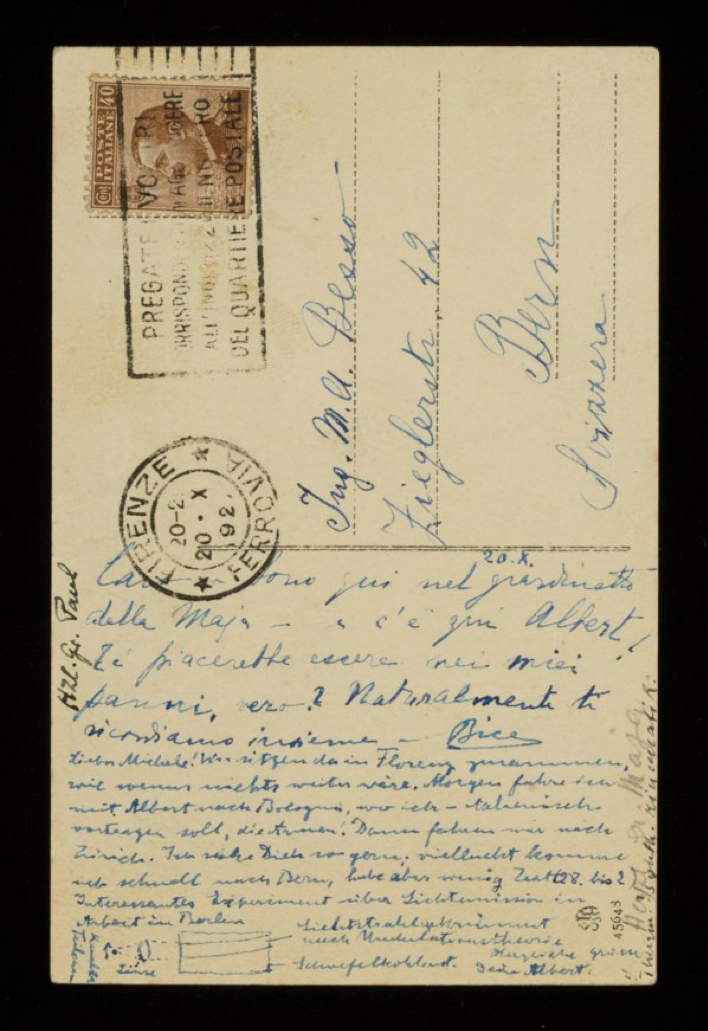 POSTE
ITALIANE
40
PREGATE
VO
DEL QUARTIERE POSTALE
FIRENZE
FERROVIA
20 · X
Ing. M. A. Besso
Zieglerstr. 42
Bern
Svizzera
20. X.
sono qui nel giardinetto
della Maja – e c'è qui Albert!
Ti piacerebbe essere nei miei
panni, vero? Naturalmente ti
ricordiamo insieme – Bice
Lieber Michele! Wir sitzen da in Florenz zusammen,
wie wenn nichts weiter wäre. Morgen fahre ich
mit Albert nach Bologna, wo ich – italienisch
vortragen soll, die Armen. Dann fahren wir nach
Zürich. Ich sähe Dich so gern, vielleicht komme
ich schnell nach Bern, habe aber wenig Zeit (28. bis 2)
Interessantes Experiment über Lichtemission in
Arbeit in Berlin
Lichtstrahl gekrümmt
nach Undulationstheorie
Schwefelkohlenst.
Linse
Herzliche Grüsse
Dein Albert.
Hzl. Gr. Paul
Maja
45643